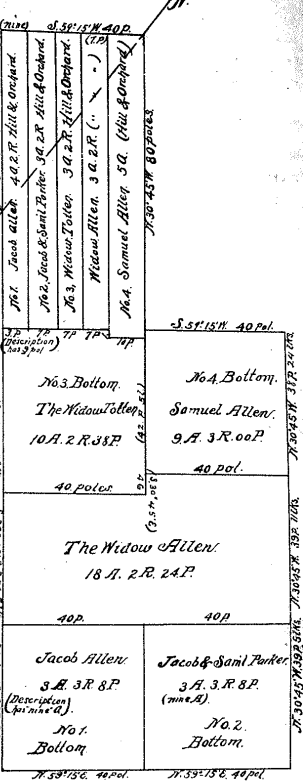 N.
(nine)
S. 59° 15' W. 40 P.
(7.P)
No.1. Jacob Allen. 4 a. 2 R. Hill & Orchard.
No.2, Jacob & Sam'l Parker. 3 a. 2 R Hill & Orchard.
No.3, Widow Totten. 3 a. 2 R. Hill & Orchard.
Widow Allen. 3 a. 2 R. (" " ")
No.4. Samuel Allen 5 a. (Hill & Orchard)
N. 30° 45' W. 80 poles.
9.P 7P 7P 7P 10P
(Description has 9 pol
S. 59° 15' W. 40 pol.
No.3. Bottom.
The Widow Totten
10 A. 2 R. 38 P.
40 poles.
No.4. Bottom.
Samuel Allen.
9 A. 3 R. 00 P.
40 pol.
N. 30° 45' W. 38 P. 24 lks.
46
(S 30°, 45' E)
The Widow Allen.
18 A. 2 R. 24 P.
N. 30° 45' W. 39 P. 11 lks.
40 P.
40 P.
Jacob Allen
3 A. 3 R. 8 P.
(Description has nine A).
No 1.
Bottom
Jacob & Sam'l Parker.
3 A. 3. R. 8 P.
(nine A).
No. 2
Bottom.
N. 30° 45' W. 39 P. 5 lks.
N. 59° 15' E. 40 pol.
N. 59° 15' E. 40 pol.